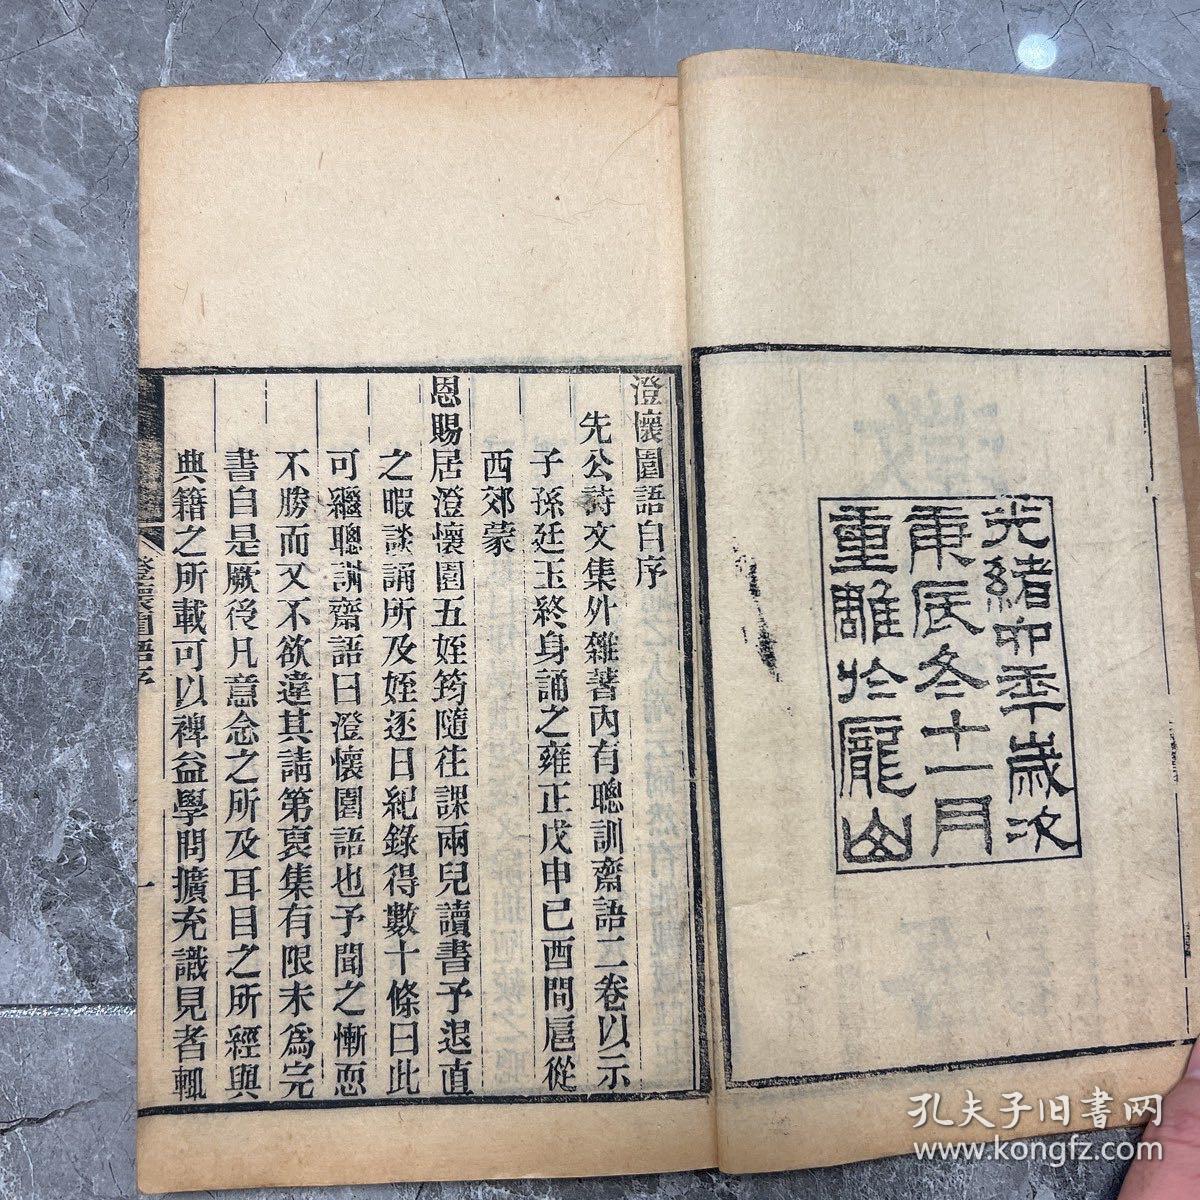 光緒卯季歲次
庚辰冬十一月
重雕於龐山
澄懷園語自序
先公詩文集外雜著內有聰訓齋語二卷以示
子孫廷玉終身誦之雍正戊申己酉間扈從
西郊蒙
恩賜居澄懷園五姪筠隨往課兩兒讀書予退直
之暇談誦所及姪逐日紀錄得數十條曰此
可繼聰訓齋語曰澄懷園語也予聞之慚恧
不勝而又不欲違其請第裒集有限未為完
書自是厥後凡意念之所及耳目之所經與
典籍之所載可以裨益學問擴充識見者輒
澄懷園語序
一
孔夫子旧书网
www.kongfz.com